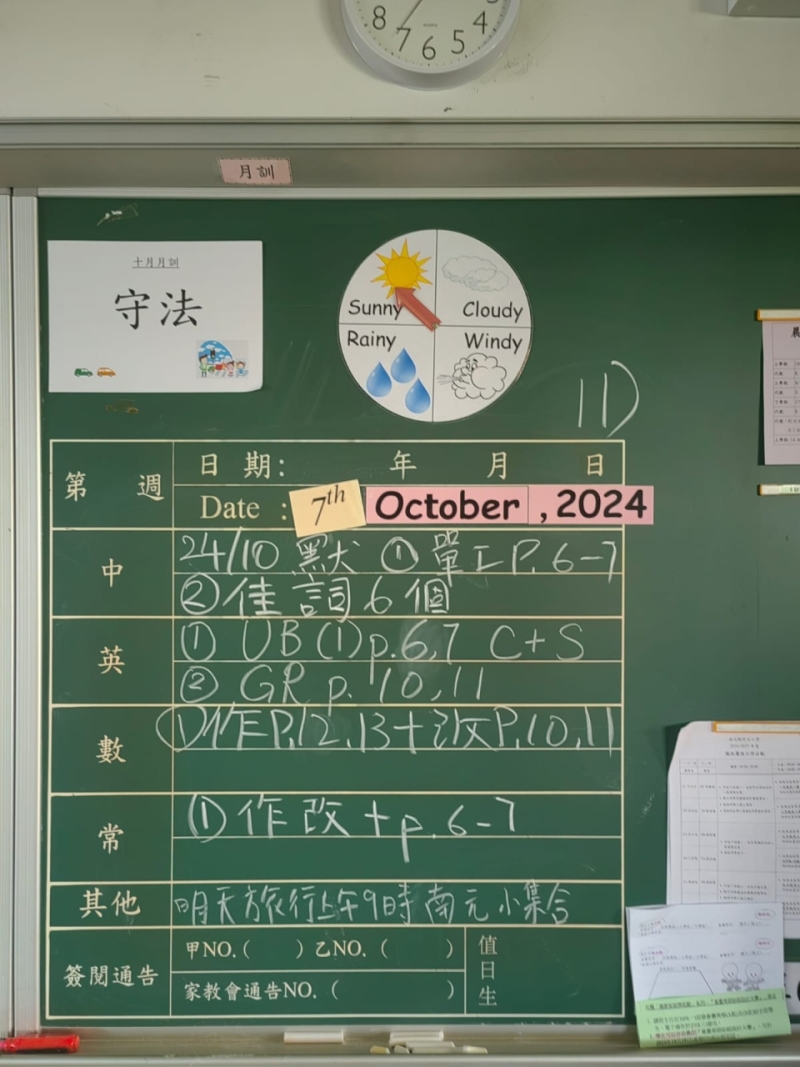 8 7 6 5 4
月訓
十月月訓
守法
Sunny
Cloudy
Rainy
Windy
11)
第 週
日期: 年 月 日
Date : 7th October , 2024
中
24/10 默 ① 單工P.6-7
② 佳詞6個
英
① UB(1)p.6,7 C+S
② GR p. 10,11
數
(1)作P.12,13+改P.10,11
常
(1)作改+p.6-7
其他
明天旅行上午9時南元小集合
簽閱通告
甲NO.( ) 乙NO.( )
家教會通告NO.( )
值日生